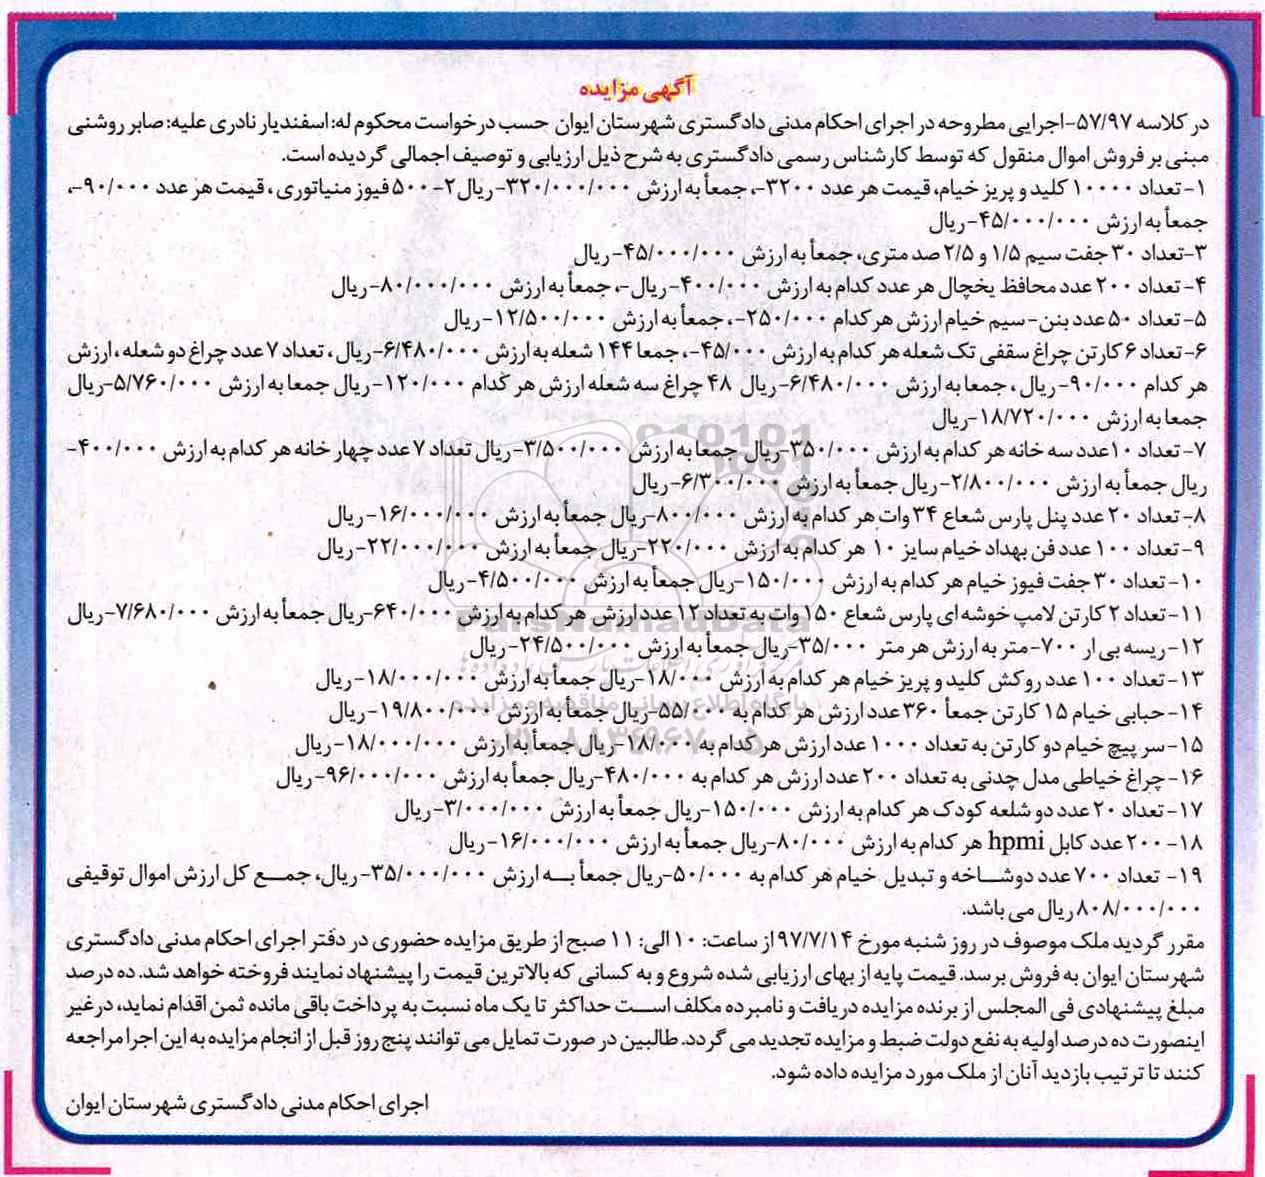 آگهی مزایده
در کلاسه ۵۷/۹۷-اجرایی مطروحه در اجرای احکام مدنی دادگستری شهرستان ایوان حسب درخواست محکوم له: اسفندیار نادری علیه: صابر روشنی
مبنی بر فروش اموال منقول که توسط کارشناس رسمی دادگستری به شرح ذیل ارزیابی و توصیف اجمالی گردیده است.
۱-تعداد ۱۰۰۰۰ کلید و پریز خیام، قیمت هر عدد ۳۲۰۰-، جمعأ به ارزش ۳۲۰/۰۰۰/۰۰۰-ریال ۲-۵۰۰ فیوز منیاتوری، قیمت هر عدد ۹۰/۰۰۰-،
جمعأ به ارزش ۴۵/۰۰۰/۰۰۰-ریال
۳-تعداد ۳۰ جفت سیم ۱/۵ و ۲/۵ صد متری، جمعأ به ارزش ۴۵/۰۰۰/۰۰۰-ریال
۴- تعداد ۲۰۰ عدد محافظ یخچال هر عدد کدام به ارزش ۴۰۰/۰۰۰-ریال-، جمعأ به ارزش ۸۰/۰۰۰/۰۰۰-ریال
۵- تعداد ۵۰ عدد بنن-سیم خیام ارزش هر کدام ۲۵۰/۰۰۰-، جمعأ به ارزش ۱۲/۵۰۰/۰۰۰-ریال
۶- تعداد ۶ کارتن چراغ سقفی تک شعله هر کدام به ارزش ۴۵/۰۰۰-، جمعا ۱۴۴ شعله به ارزش ۶/۴۸۰/۰۰۰-ریال، تعداد ۷ عدد چراغ دو شعله، ارزش
هر کدام ۹۰/۰۰۰-ریال، جمعا به ارزش ۶/۴۸۰/۰۰۰-ریال ۴۸ چراغ سه شعله ارزش هر کدام ۱۲۰/۰۰۰-ریال جمعا به ارزش ۵/۷۶۰/۰۰۰-ریال
جمعا به ارزش ۱۸/۷۲۰/۰۰۰-ریال
۷- تعداد ۱۰ عدد سه خانه هر کدام به ارزش ۳۵۰/۰۰۰-ریال جمعأ به ارزش ۳/۵۰۰/۰۰۰-ریال تعداد ۷ عدد چهار خانه هر کدام به ارزش ۴۰۰/۰۰۰-
ریال جمعأ به ارزش ۲/۸۰۰/۰۰۰-ریال جمعأ به ارزش ۶/۳۰۰/۰۰۰-ریال
۸- تعداد ۲۰ عدد پنل پارس شعاع ۳۴ وات هر کدام به ارزش ۸۰۰/۰۰۰-ریال جمعأ به ارزش ۱۶/۰۰۰/۰۰۰-ریال
۹- تعداد ۱۰۰ عدد فن بهداد خیام سایز ۱۰ هر کدام به ارزش ۲۲۰/۰۰۰-ریال جمعأ به ارزش ۲۲/۰۰۰/۰۰۰-ریال
۱۰- تعداد ۳۰ جفت فیوز خیام هر کدام به ارزش ۱۵۰/۰۰۰-ریال جمعأ به ارزش ۴/۵۰۰/۰۰۰-ریال
۱۱- تعداد ۲ کارتن لامپ خوشه ای پارس شعاع ۱۵۰ وات به تعداد ۱۲ عدد ارزش هر کدام به ارزش ۶۴۰/۰۰۰-ریال جمعأ به ارزش ۷/۶۸۰/۰۰۰-ریال
۱۲- ریسه بی ار ۷۰۰-متر به ارزش هر متر ۳۵/۰۰۰-ریال جمعأ به ارزش ۲۴/۵۰۰/۰۰۰-ریال
۱۳- تعداد ۱۰۰ عدد روکش کلید و پریز خیام هر کدام به ارزش ۱۸/۰۰۰-ریال جمعأ به ارزش ۱۸/۰۰۰/۰۰۰-ریال
۱۴-حبابی خیام ۱۵ کارتن جمعأ ۳۶۰ عدد ارزش هر کدام به ۵۵/۰۰۰-ریال جمعأ به ارزش ۱۹/۸۰۰/۰۰۰-ریال
۱۵-سر پیچ خیام دو کارتن به تعداد ۱۰۰۰ عدد ارزش هر کدام به ۱۸/۰۰۰-ریال جمعأ به ارزش ۱۸/۰۰۰/۰۰۰-ریال
۱۶-چراغ خیاطی مدل چدنی به تعداد ۲۰۰ عدد ارزش هر کدام به ۴۸۰/۰۰۰-ریال جمعأ به ارزش ۹۶/۰۰۰/۰۰۰-ریال
۱۷- تعداد ۲۰ عدد دو شلعه کودک هر کدام به ارزش ۱۵۰/۰۰۰-ریال جمعأ به ارزش ۳/۰۰۰/۰۰۰-ریال
۱۸- ۲۰۰ عدد کابل hpmi هر کدام به ارزش ۸۰/۰۰۰-ریال جمعأ به ارزش ۱۶/۰۰۰/۰۰۰-ریال
۱۹- تعداد ۷۰۰ عدد دوشاخه و تبدیل خیام هر کدام به ۵۰/۰۰۰-ریال جمعأ به ارزش ۳۵/۰۰۰/۰۰۰-ریال، جمع کل ارزش اموال توقیفی
۸۰۸/۰۰۰/۰۰۰ ریال می باشد.
مقرر گردید ملک موصوف در روز شنبه مورخ ۹۷/۷/۱۴ از ساعت: ۱۰ الی: ۱۱ صبح از طریق مزایده حضوری در دفتر اجرای احکام مدنی دادگستری
شهرستان ایوان به فروش برسد. قیمت پایه از بهای ارزیابی شده شروع و به کسانی که بالاترین قیمت را پیشنهاد نمایند فروخته خواهد شد. ده درصد
مبلغ پیشنهادی فی المجلس از برنده مزایده دریافت و نامبرده مکلف است حداکثر تا یک ماه نسبت به پرداخت باقی مانده ثمن اقدام نماید، در غیر
اینصورت ده درصد اولیه به نفع دولت ضبط و مزایده تجدید می گردد. طالبین در صورت تمایل می توانند پنج روز قبل از انجام مزایده به این اجرا مراجعه
کنند تا ترتیب بازدید آنان از ملک مورد مزایده داده شود.
اجرای احکام مدنی دادگستری شهرستان ایوان
ParsNamadData